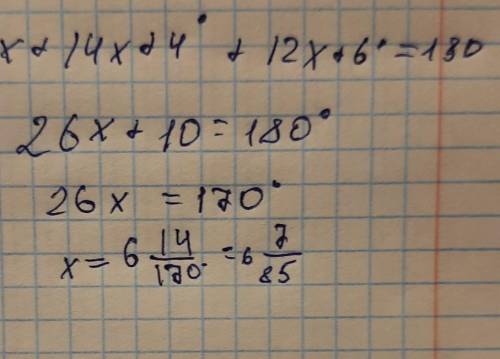 x + 14x + 4° + 12x + 6° = 180
26x + 10 = 180°
26x = 170°
x = 6 14/170 = 6 7/85